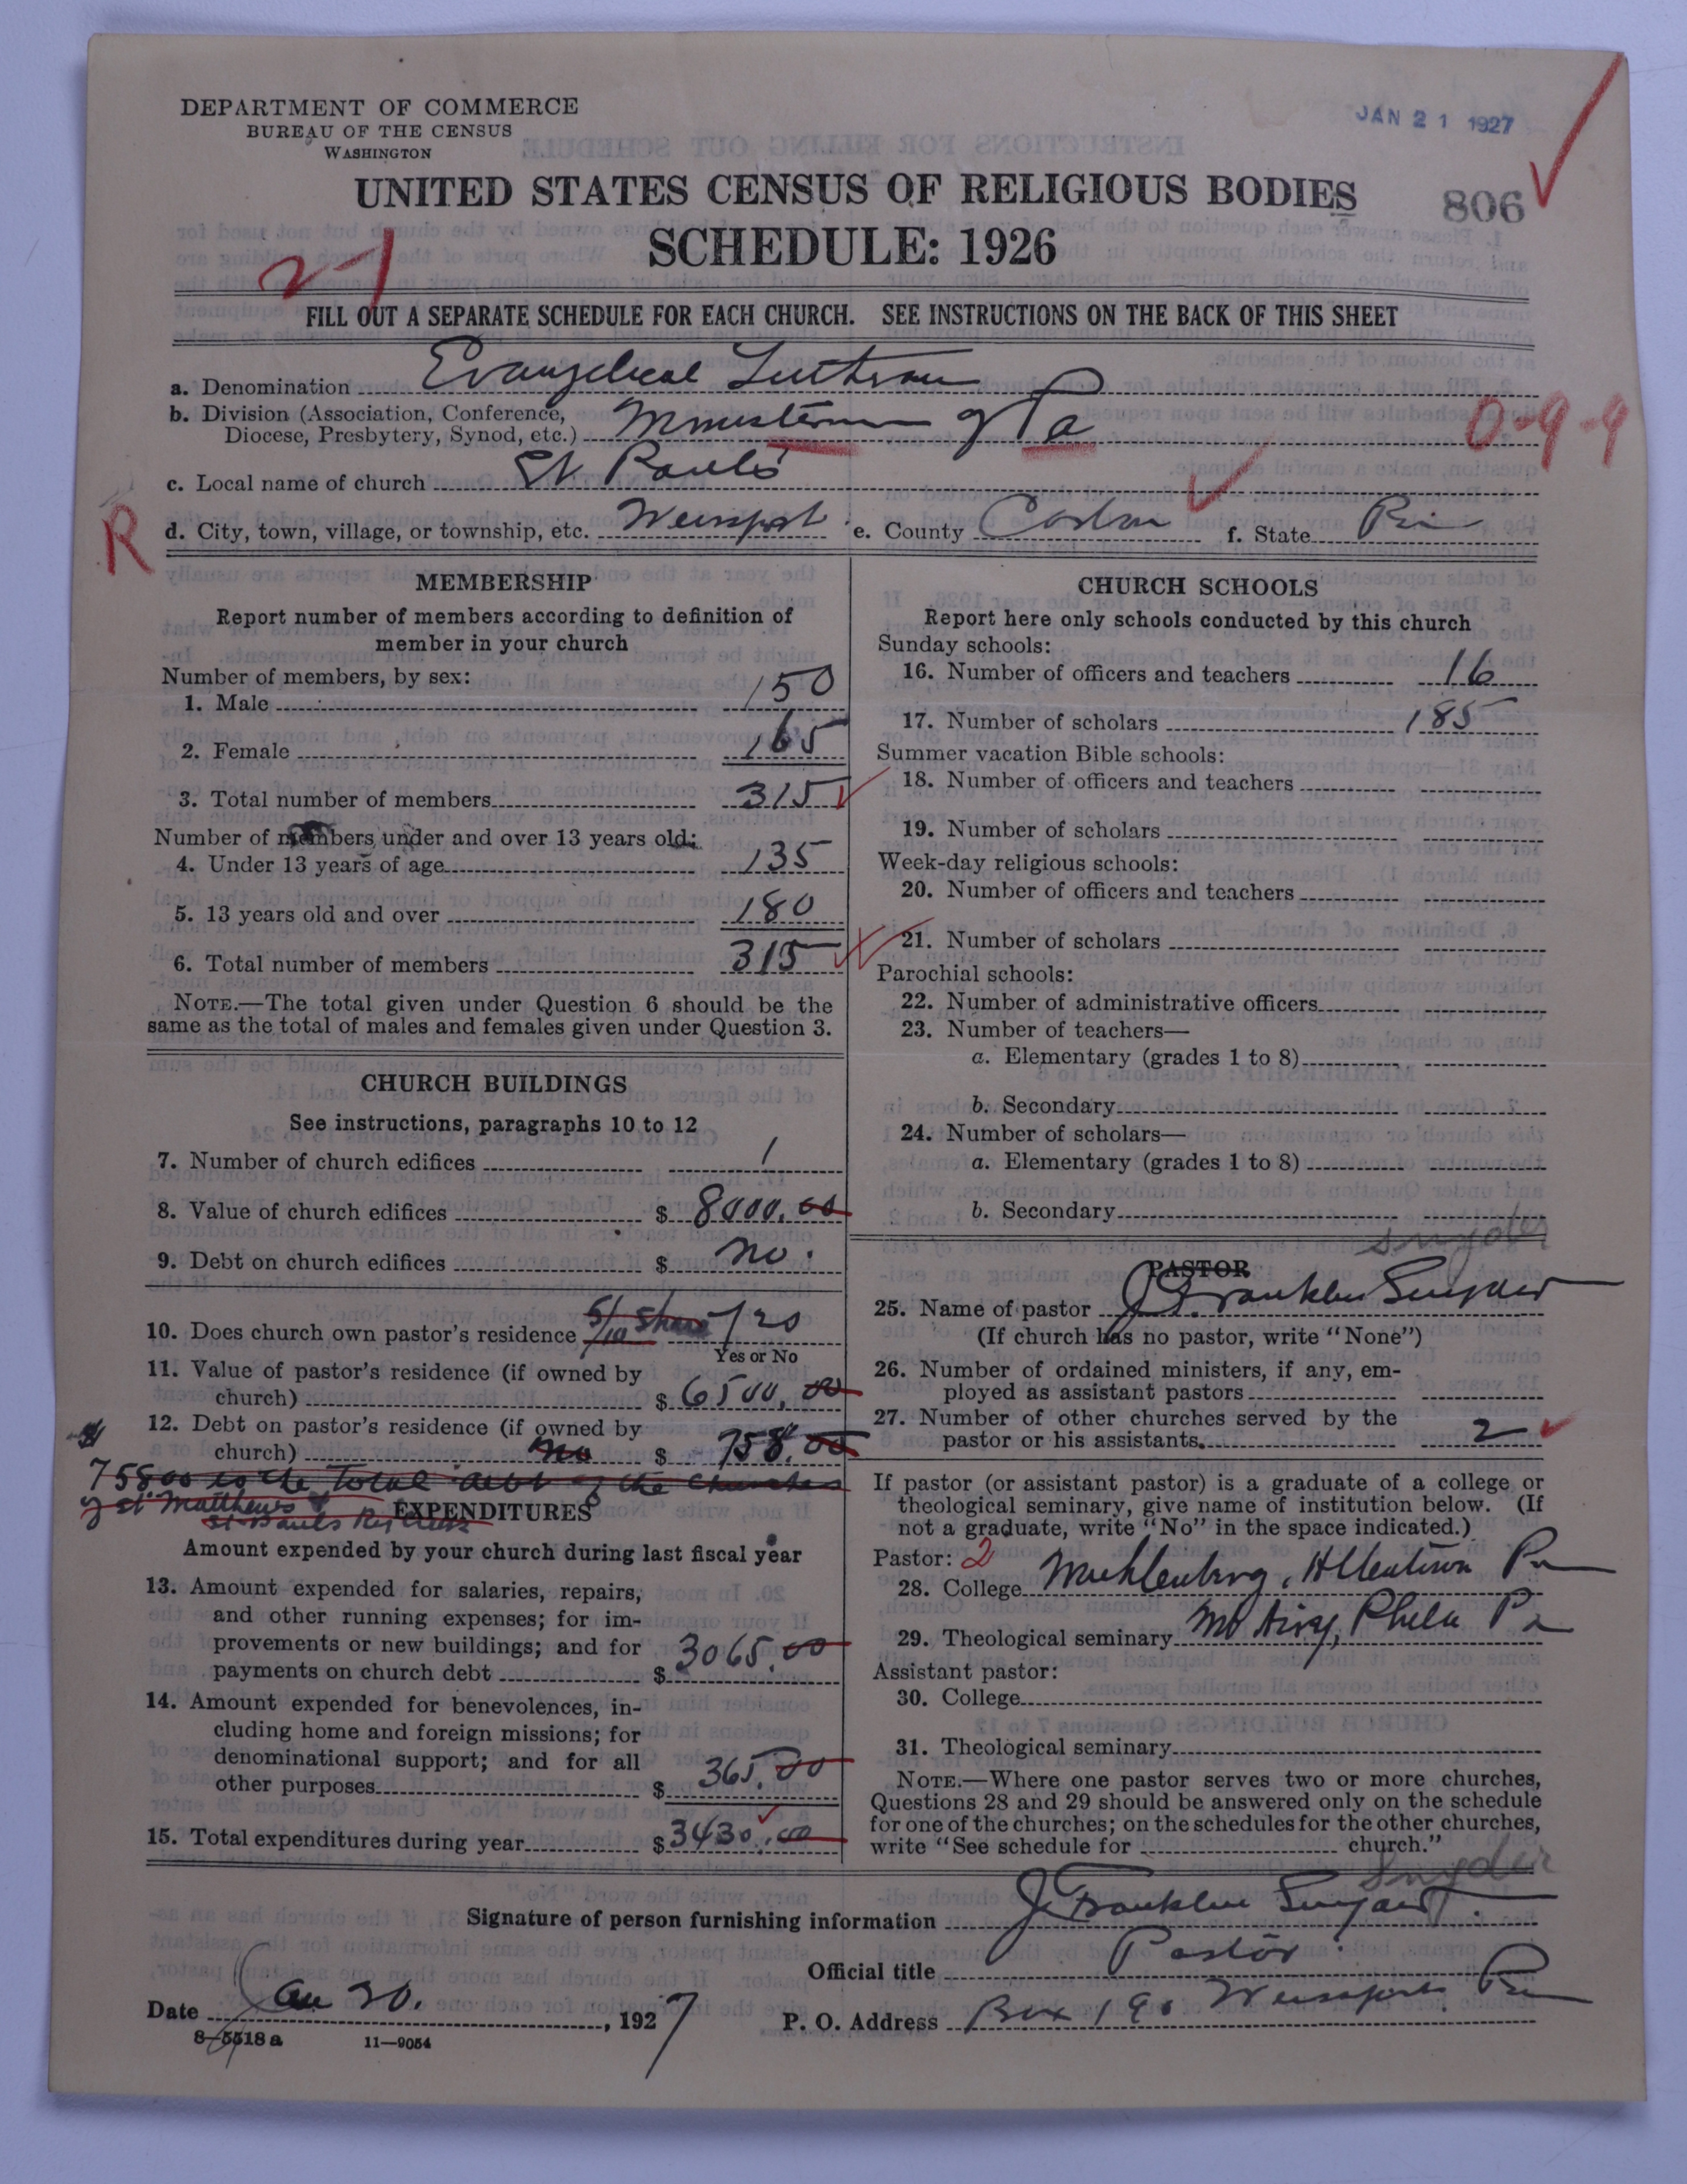 DEPARTMENT OF COMMERCE
BUREAU OF THE CENSUS
WASHINGTON
JAN 21 1927
UNITED STATES CENSUS OF RELIGIOUS BODIES
806
SCHEDULE: 1926
21
FILL OUT A SEPARATE SCHEDULE FOR EACH CHURCH. SEE INSTRUCTIONS ON THE BACK OF THIS SHEET
a. Denomination Evangelical Lutheran
b. Division (Association, Conference,
Diocese, Presbytery, Synod, etc.) Ministerium of Pa
0-9-9
c. Local name of church St Paul's
R
d. City, town, village, or township, etc. Weissport e. County Carbon f. State Pa
MEMBERSHIP
Report number of members according to definition of
member in your church
Number of members, by sex:
1. Male 150
2. Female 165
3. Total number of members 315
Number of members under and over 13 years old:
4. Under 13 years of age 135
5. 13 years old and over 180
6. Total number of members 315
NOTE.—The total given under Question 6 should be the
same as the total of males and females given under Question 3.
CHURCH BUILDINGS
See instructions, paragraphs 10 to 12
7. Number of church edifices 1
8. Value of church edifices $ 8000.00
9. Debt on church edifices $ no.
10. Does church own pastor's residence 5/10 share yes
Yes or No
11. Value of pastor's residence (if owned by
church) $ 6500.00
12. Debt on pastor's residence (if owned by
church) no $ 758.00
758.00 is the total debt of the churches
of St Matthews &
St Pauls
EXPENDITURES
Amount expended by your church during last fiscal year
13. Amount expended for salaries, repairs,
and other running expenses; for im-
provements or new buildings; and for
payments on church debt $ 3065.00
14. Amount expended for benevolences, in-
cluding home and foreign missions; for
denominational support; and for all
other purposes $ 365.00
15. Total expenditures during year $ 3430.00
CHURCH SCHOOLS
Report here only schools conducted by this church
Sunday schools:
16. Number of officers and teachers 16
17. Number of scholars 185
Summer vacation Bible schools:
18. Number of officers and teachers
19. Number of scholars
Week-day religious schools:
20. Number of officers and teachers
21. Number of scholars
Parochial schools:
22. Number of administrative officers
23. Number of teachers—
a. Elementary (grades 1 to 8)
b. Secondary
24. Number of scholars—
a. Elementary (grades 1 to 8)
b. Secondary
Snyder
PASTOR
25. Name of pastor J. Franklin Snyder
(If church has no pastor, write "None")
26. Number of ordained ministers, if any, em-
ployed as assistant pastors
27. Number of other churches served by the
pastor or his assistants 2
If pastor (or assistant pastor) is a graduate of a college or
theological seminary, give name of institution below. (If
not a graduate, write "No" in the space indicated.)
Pastor: 2
28. College Muhlenberg, Allentown Pa
29. Theological seminary Mt Airy, Phila Pa
Assistant pastor:
30. College
31. Theological seminary
NOTE.—Where one pastor serves two or more churches,
Questions 28 and 29 should be answered only on the schedule
for one of the churches; on the schedules for the other churches,
write "See schedule for church."
Snyder
Signature of person furnishing information J. Franklin Snyder
Official title Pastor
Date Jan 20. , 1927 P. O. Address Box 190 Weissport Pa
8-5518 a 11-9054